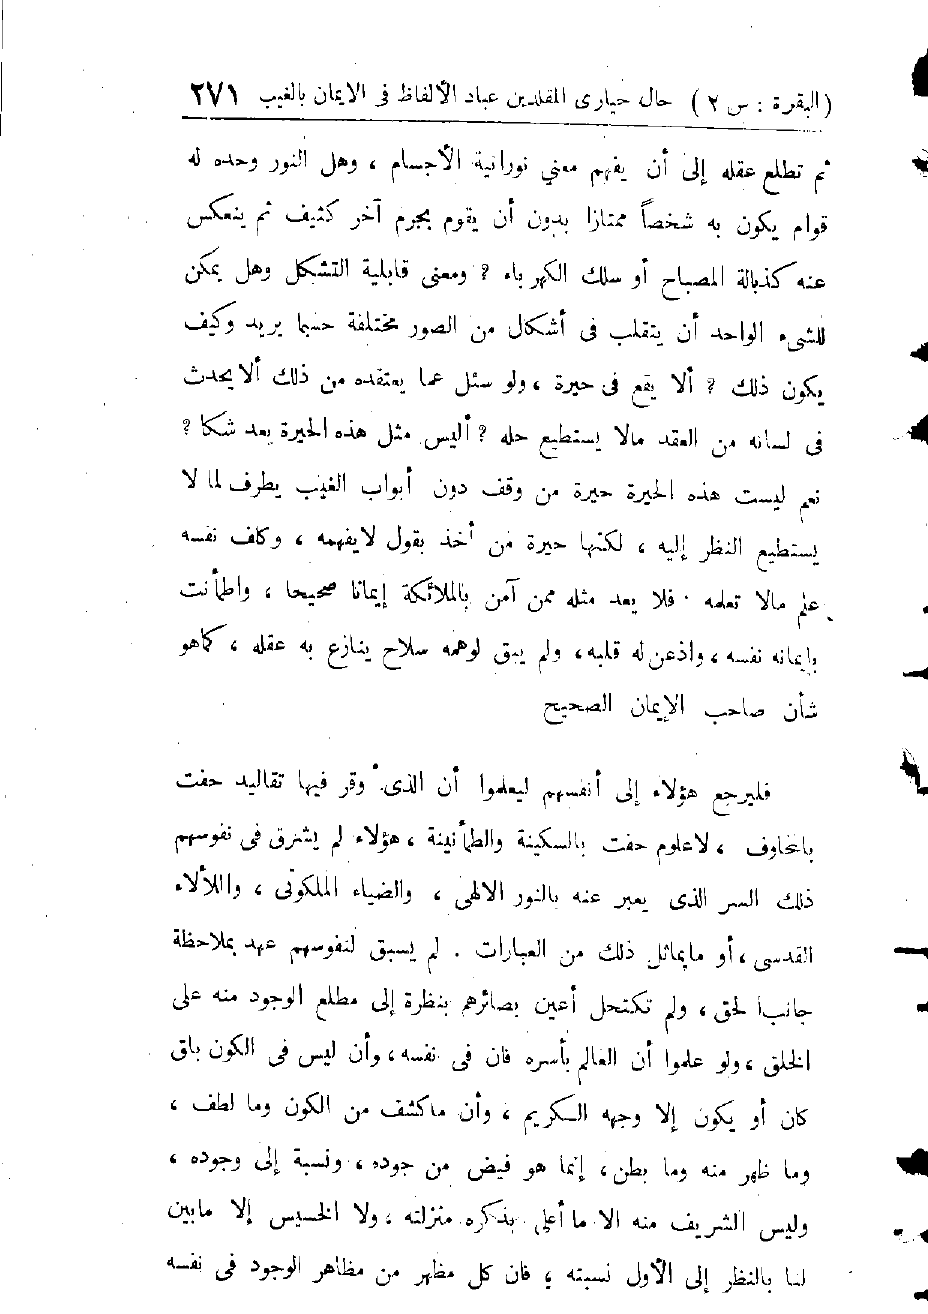 (البقرة : س ٢) حال حيارى المقلدين عباد الألفاظ فى الايمان بالغيب ٢٧١
ثم تطلع عقله إلى أن يفهم معنى نورانية الأجسام ، وهل النور وحده له
قوام يكون به شخصاً ممتازا بدون أن يقوم بجرم آخر كثيف ثم ينعكس
عنه كذبالة المصباح أو سلك الكهرباء ؟ ومعنى قابلية التشكل وهل يمكن
للشىء الواحد أن يتقلب فى أشكال من الصور مختلفة حسبما يريد وكيف
يكون ذلك ؟ ألا يقع فى حيرة ، ولو سئل عما يعتقده من ذلك ألا يحدث
فى لسانه من العقد مالا يستطيع حله ؟ أليس مثل هذه الحيرة يعد شكا ؟
نعم ليست هذه الحيرة حيرة من وقف دون أبواب الغيب يطرف لما لا
يستطيع النظر إليه ، لكنها حيرة من أخذ بقول لايفهمه ، وكلف نفسه
علم مالا تعلمه . فلا يعد مثله ممن آمن بالملائكة إيمانا صحيحا ، واطمأنت
بإيمانه نفسه ، واذعن له قلبه ، ولم يبق لوهمه سلاح ينازع به عقله ، كما هو
شأن صاحب الإيمان الصحيح
فليرجع هؤلاء إلى أنفسهم ليعلموا أن الذى وقر فيها تقاليد حفت
بالمخاوف ، لاعلوم حفت بالسكينة والطمأنينة ، هؤلاء لم يشرق فى نفوسهم
ذلك السر الذى يعبر عنه بالنور الالهى ، والضياء الملكوتى ، واللألاء
القدسى ، أو مايماثل ذلك من العبارات . لم يسبق لنفوسهم عهد بملاحظة
جانب الحق ، ولم تكتحل أعين بصائرهم بنظرة إلى مطلع الوجود منه على
الخلق ، ولو علموا أن العالم بأسره فان فى نفسه ، وأن ليس فى الكون باق
كان أو يكون إلا وجهه الكريم ، وأن ماكشف من الكون وما لطف ،
وما ظهر منه وما بطن ، إنما هو فيض من جوده ، ونسبة إلى وجوده ،
وليس الشريف منه الا ما أعلى بذكره منزلته ، ولا الخسيس إلا مابين
لنا بالنظر إلى الأول نسبته ، فان كل مظهر من مظاهر الوجود فى نفسه